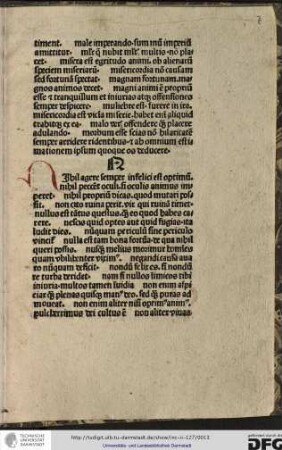 timent. male imperando summū imperiū
amittitur. misēq̄ nubit mlr̄. multis nō pla
cet. misera est egritudo animi. ob alienarū
speciem miseriarū. misericordia nō causam
sed fortunā spectat. magnam fortunam. mag
nos animos decet. magni animi ē proprium
esse & tranquillum et iniurias atq3 offensiones
semper despicere. muliebre est. furere in ira.
misericordia est vicīa miserie. habet em̄ aliquid
trahitq3 ex ea. malo veris offendere q̄ placere
adulando. morbum esse scias nō hilaritatē
semper arridere ridentibus & ab omnium esti
mationem ipsum quoque os deducere.
N
Nihil agere semper infelici est optimū.
nihil peccēt oculi. si oculis animus im
peret. nihil propriū dicas. quod mutari pos
sit. non cito ruina perit. vir qui ruinā timet.
nullus est tātus questus. q̄3 eo quod habes car
cere. nescio quid optes aut quid fugias. ita
ludit dies. nūquam periculū sine periculo
vincif. nulla est tam bona fortūa. de qua nihil
queri possis. nusq3 melius morimur homies
quam vbi libenter viximꝰ. negandi causa aua
ro nūquam deficit. nondū felix es. si nondū
te turba deridet. nam si nullos timeos tibi
iniuria. multos tamen luuidia. non enim aspi
ciar q̄3 plenas quisq3 manꝰ deo. sed q̄3 puras ad
moueat. non enim aliter nisi optimꝰ animꝰ.
pulcherrimus dei cultus ē. non aliter viuas
TECHNISCHE
UNIVERSITÄT
DARMSTADT
http://tudigit.ulb.tu-darmstadt.de/show/inc-ii-227/0013
Universitäts- und Landesbibliothek Darmstadt
DFG